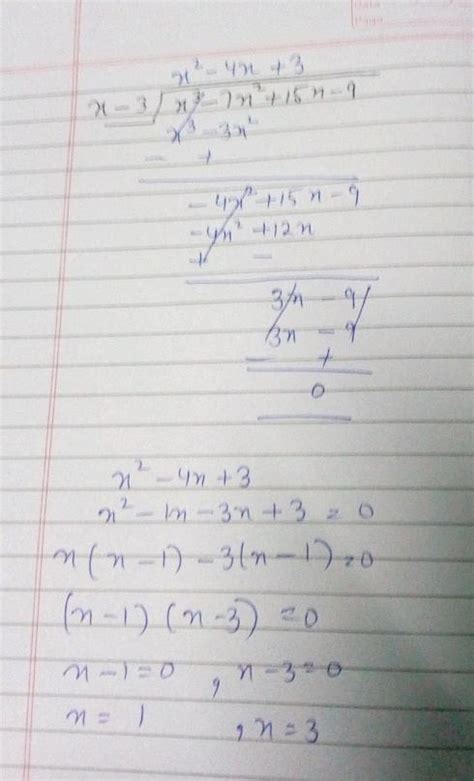 x² - 4x + 3
x - 3 ) x³ - 7x² + 15x - 9
x³ - 3x²
- +
- 4x² + 15x - 9
- 4x² + 12x
+ -
3x - 9
3x - 9
- +
0
x² - 4x + 3
x² - 1x - 3x + 3 = 0
x(x - 1) - 3(x - 1) = 0
(x - 1) (x - 3) = 0
x - 1 = 0 , x - 3 = 0
x = 1 , x = 3